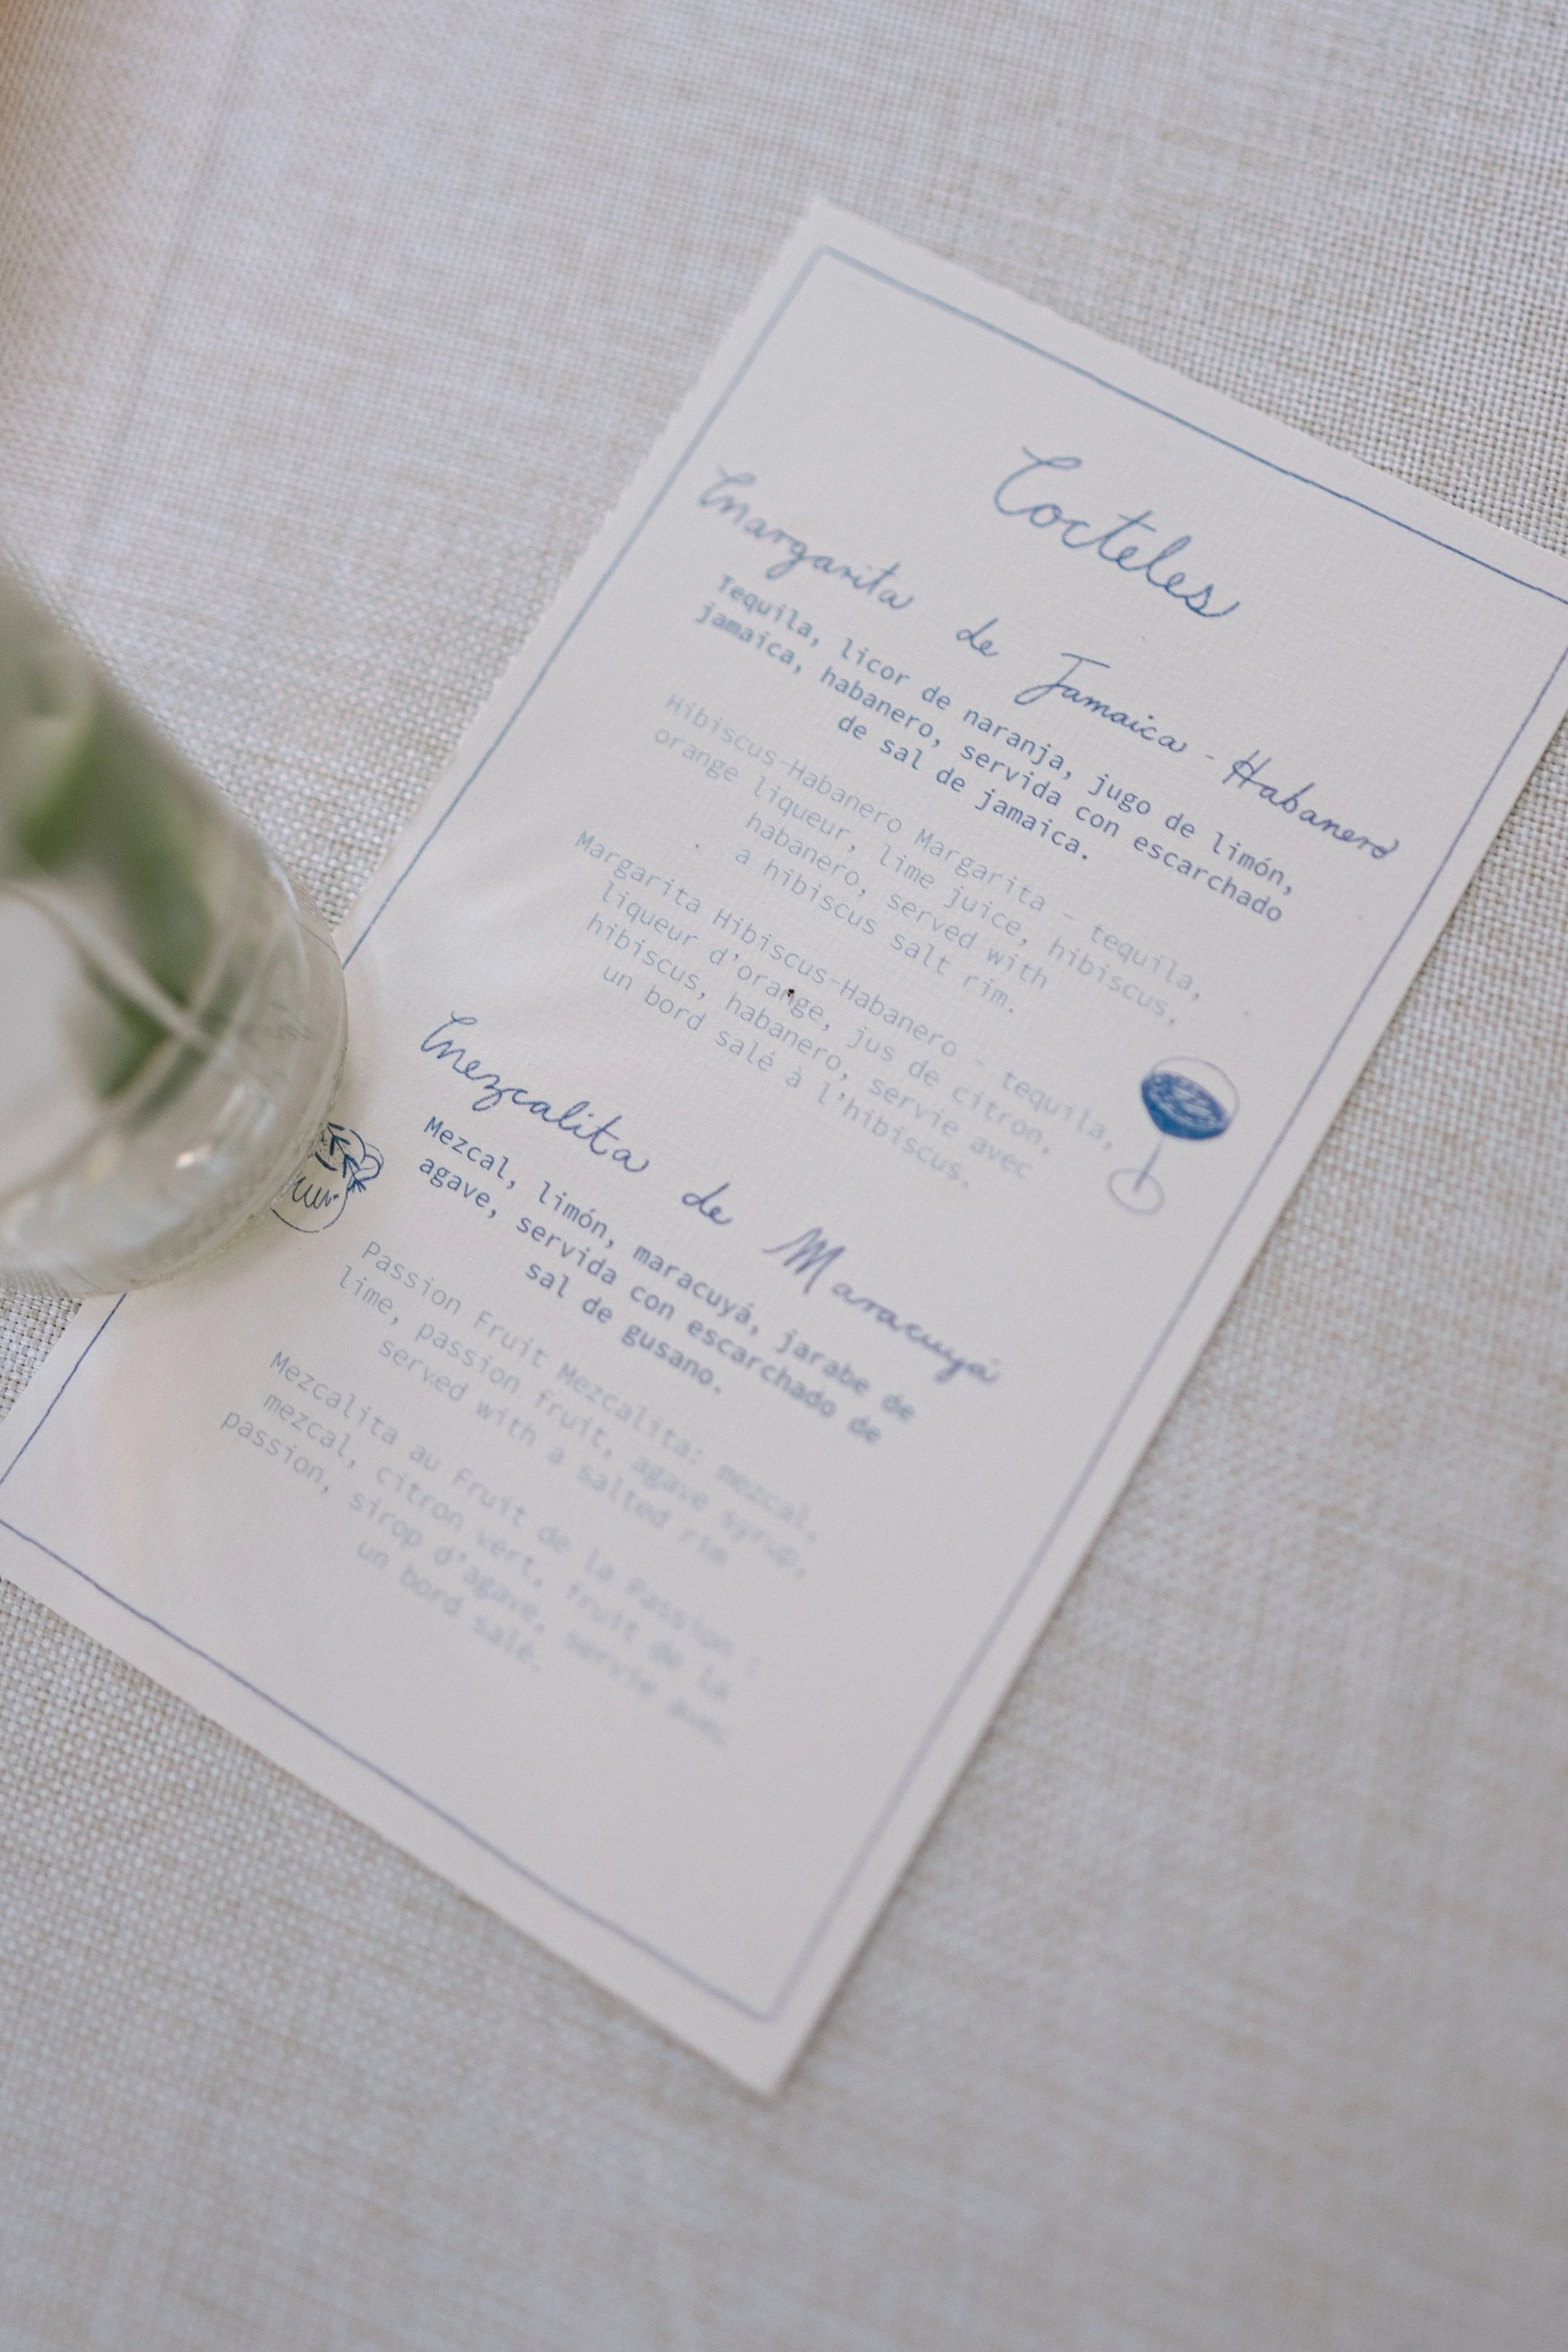 Cocteles
Margarita de Jamaica - Habanero
Tequila, licor de naranja, jugo de limón,
jamaica, habanero, servida con escarchado
de sal de jamaica.
Hibiscus-Habanero Margarita - tequila,
orange liqueur, lime juice, hibiscus,
habanero, served with
a hibiscus salt rim.
Margarita Hibiscus-Habanero - tequila,
liqueur d'orange, jus de citron,
hibiscus, habanero, servie avec
un bord salé à l'hibiscus.
Mezcalita de Maracuyá
Mezcal, limón, maracuyá, jarabe de
agave, servida con escarchado de
sal de gusano.
Passion Fruit Mezcalita: mezcal,
lime, passion fruit, agave syrup,
served with a salted rim
Mezcalita au Fruit de la Passion :
mezcal, citron vert, fruit de la
passion, sirop d'agave, servie avec
un bord salé.